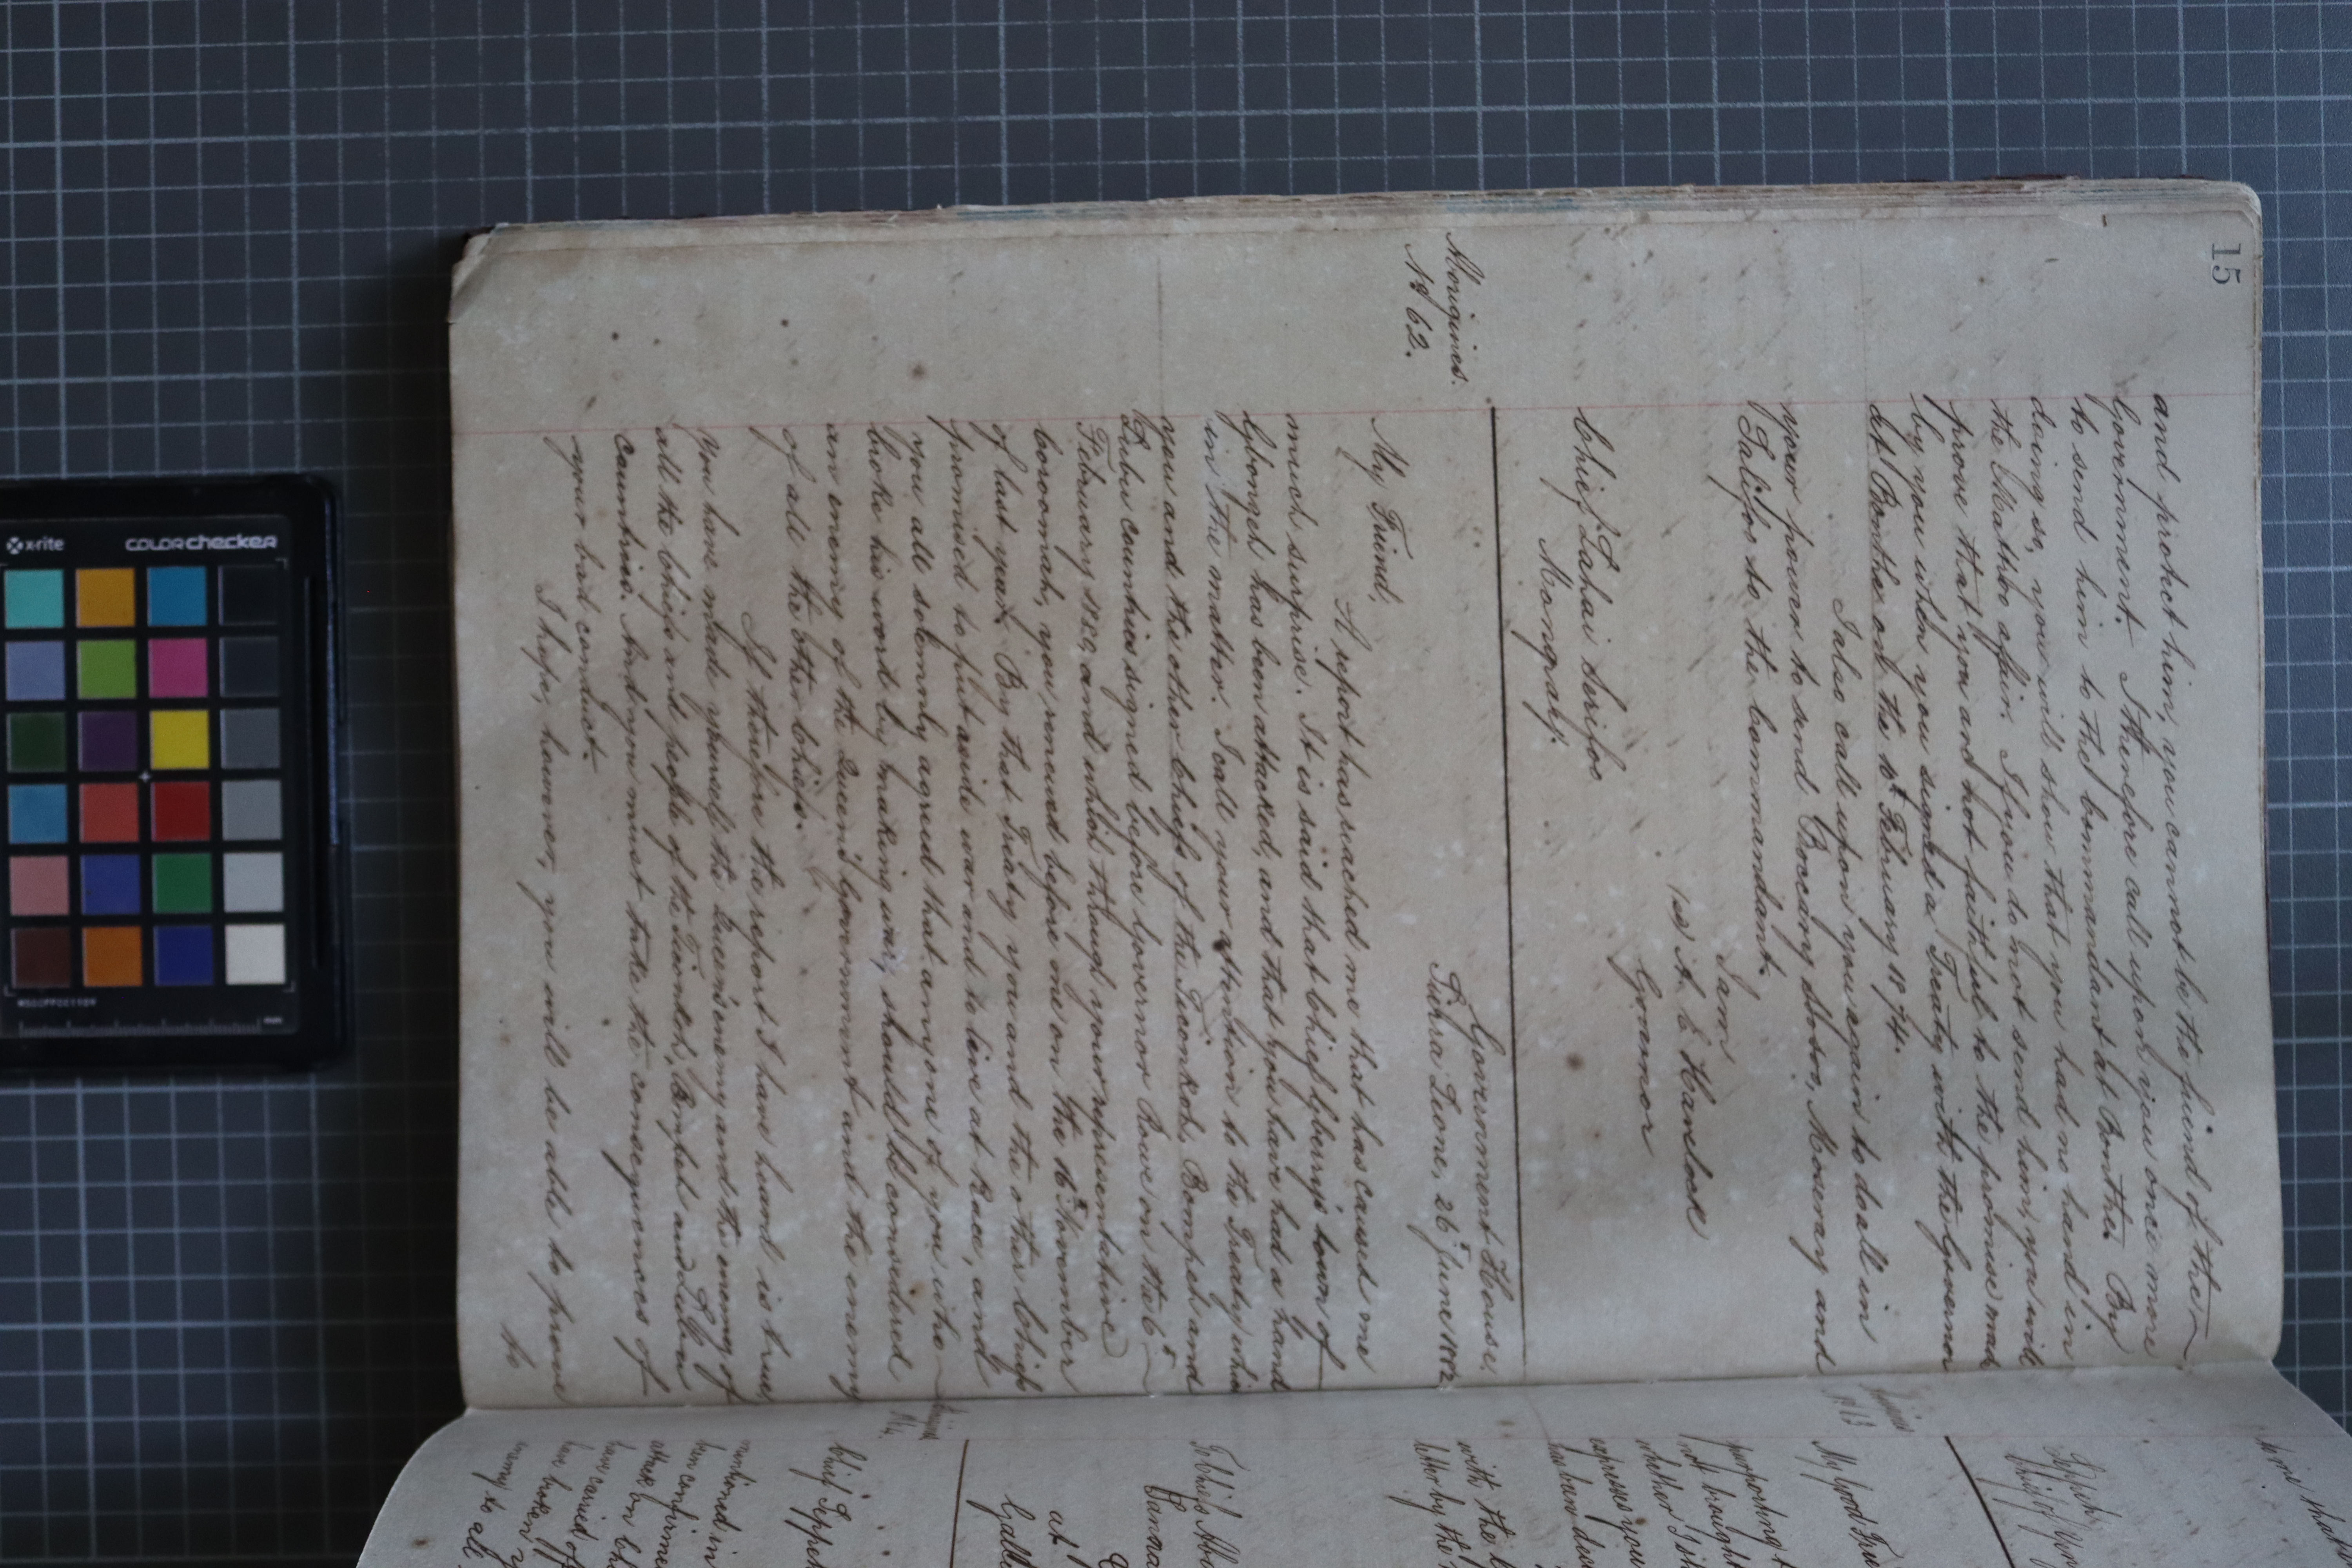 15
and protect him, you cannot be the friend of the
Government. I therefore call upon you once more
to send him to the Commandant at Bonthe. By
doing so, you will show that you had no hand in
the affair. If you do not send him, you will
prove that you and not faithful to the promise made
by you when you signed a Treaty with the Governor
at Bonthe on the February 1874.
I also call upon you again to do all in
your power to send Boccary Sobo, Moseray and
Salifoo to the Commandant.
I am
(sd) A. E. Havelock
Governor
Chief Lahai Serifoo
Mongahj.
Aborigines.
No 62.
Government House,
Sierra Leone, 26th June 1882
My Friend,
A report has reached me that has caused me
much surprise. It is said that Chief Gberry's town of
has been attacked, and that you have had a hand
in the matter. I call your attention to the Treaty which
you and the other Chiefs of the Tieonkoh, Bompeh and
Lubu countries signed before Governor Rowe on the
February 1880, and which though your representative
boromah, you renewed before me on the 16th November
of last year. By that Treaty you and the other Chiefs
promised to put aside war and to live at peace, and
you all solemnly agreed that anyone of you who
broke his word by making war, should be considered
an enemy of the Queen's Government and the enemy
of all the other Chiefs.
If therefore the report I have heard is true,
you have made yourself the Queen's enemy and the enemy of
all the Chiefs and people of the Tieonkoh, Bompeh and Lubu
Countries. And you must take the consequences of
your bad conduct.
I hope, however, you will be able to prove
to
My Good
purporting
not brought
whether
express you
with the
letter by the
To Chiefs
at
Chief
mentioned in
him
attack on
have carried off
have broken
enemy to all